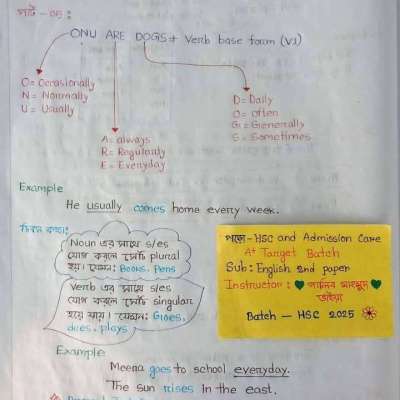 পার্ট - 05 :
ONU ARE DOGS + Verb base form (V1)
O = Occasionally
N = Normally
U = Usually
A = always
R = Regularly
E = Everyday
D = Daily
O = Often
G = Generally
S = Sometimes
Example
He usually comes home every week.
Noun এর সাথে s/es
যোগ করলে সেটি plural
হয়। যেমন: Books, Pens
Verb এর সাথে s/es
যোগ করলে সেটি singular
হয়ে যায়। যেমন: Goes,
does, plays
HSC and Admission Care
A+ Target Batch
Sub : English 2nd paper
Instructor :
ভাইয়া
Batch — HSC 2025
Example
Meena goes to school everyday.
The sun rises in the east.